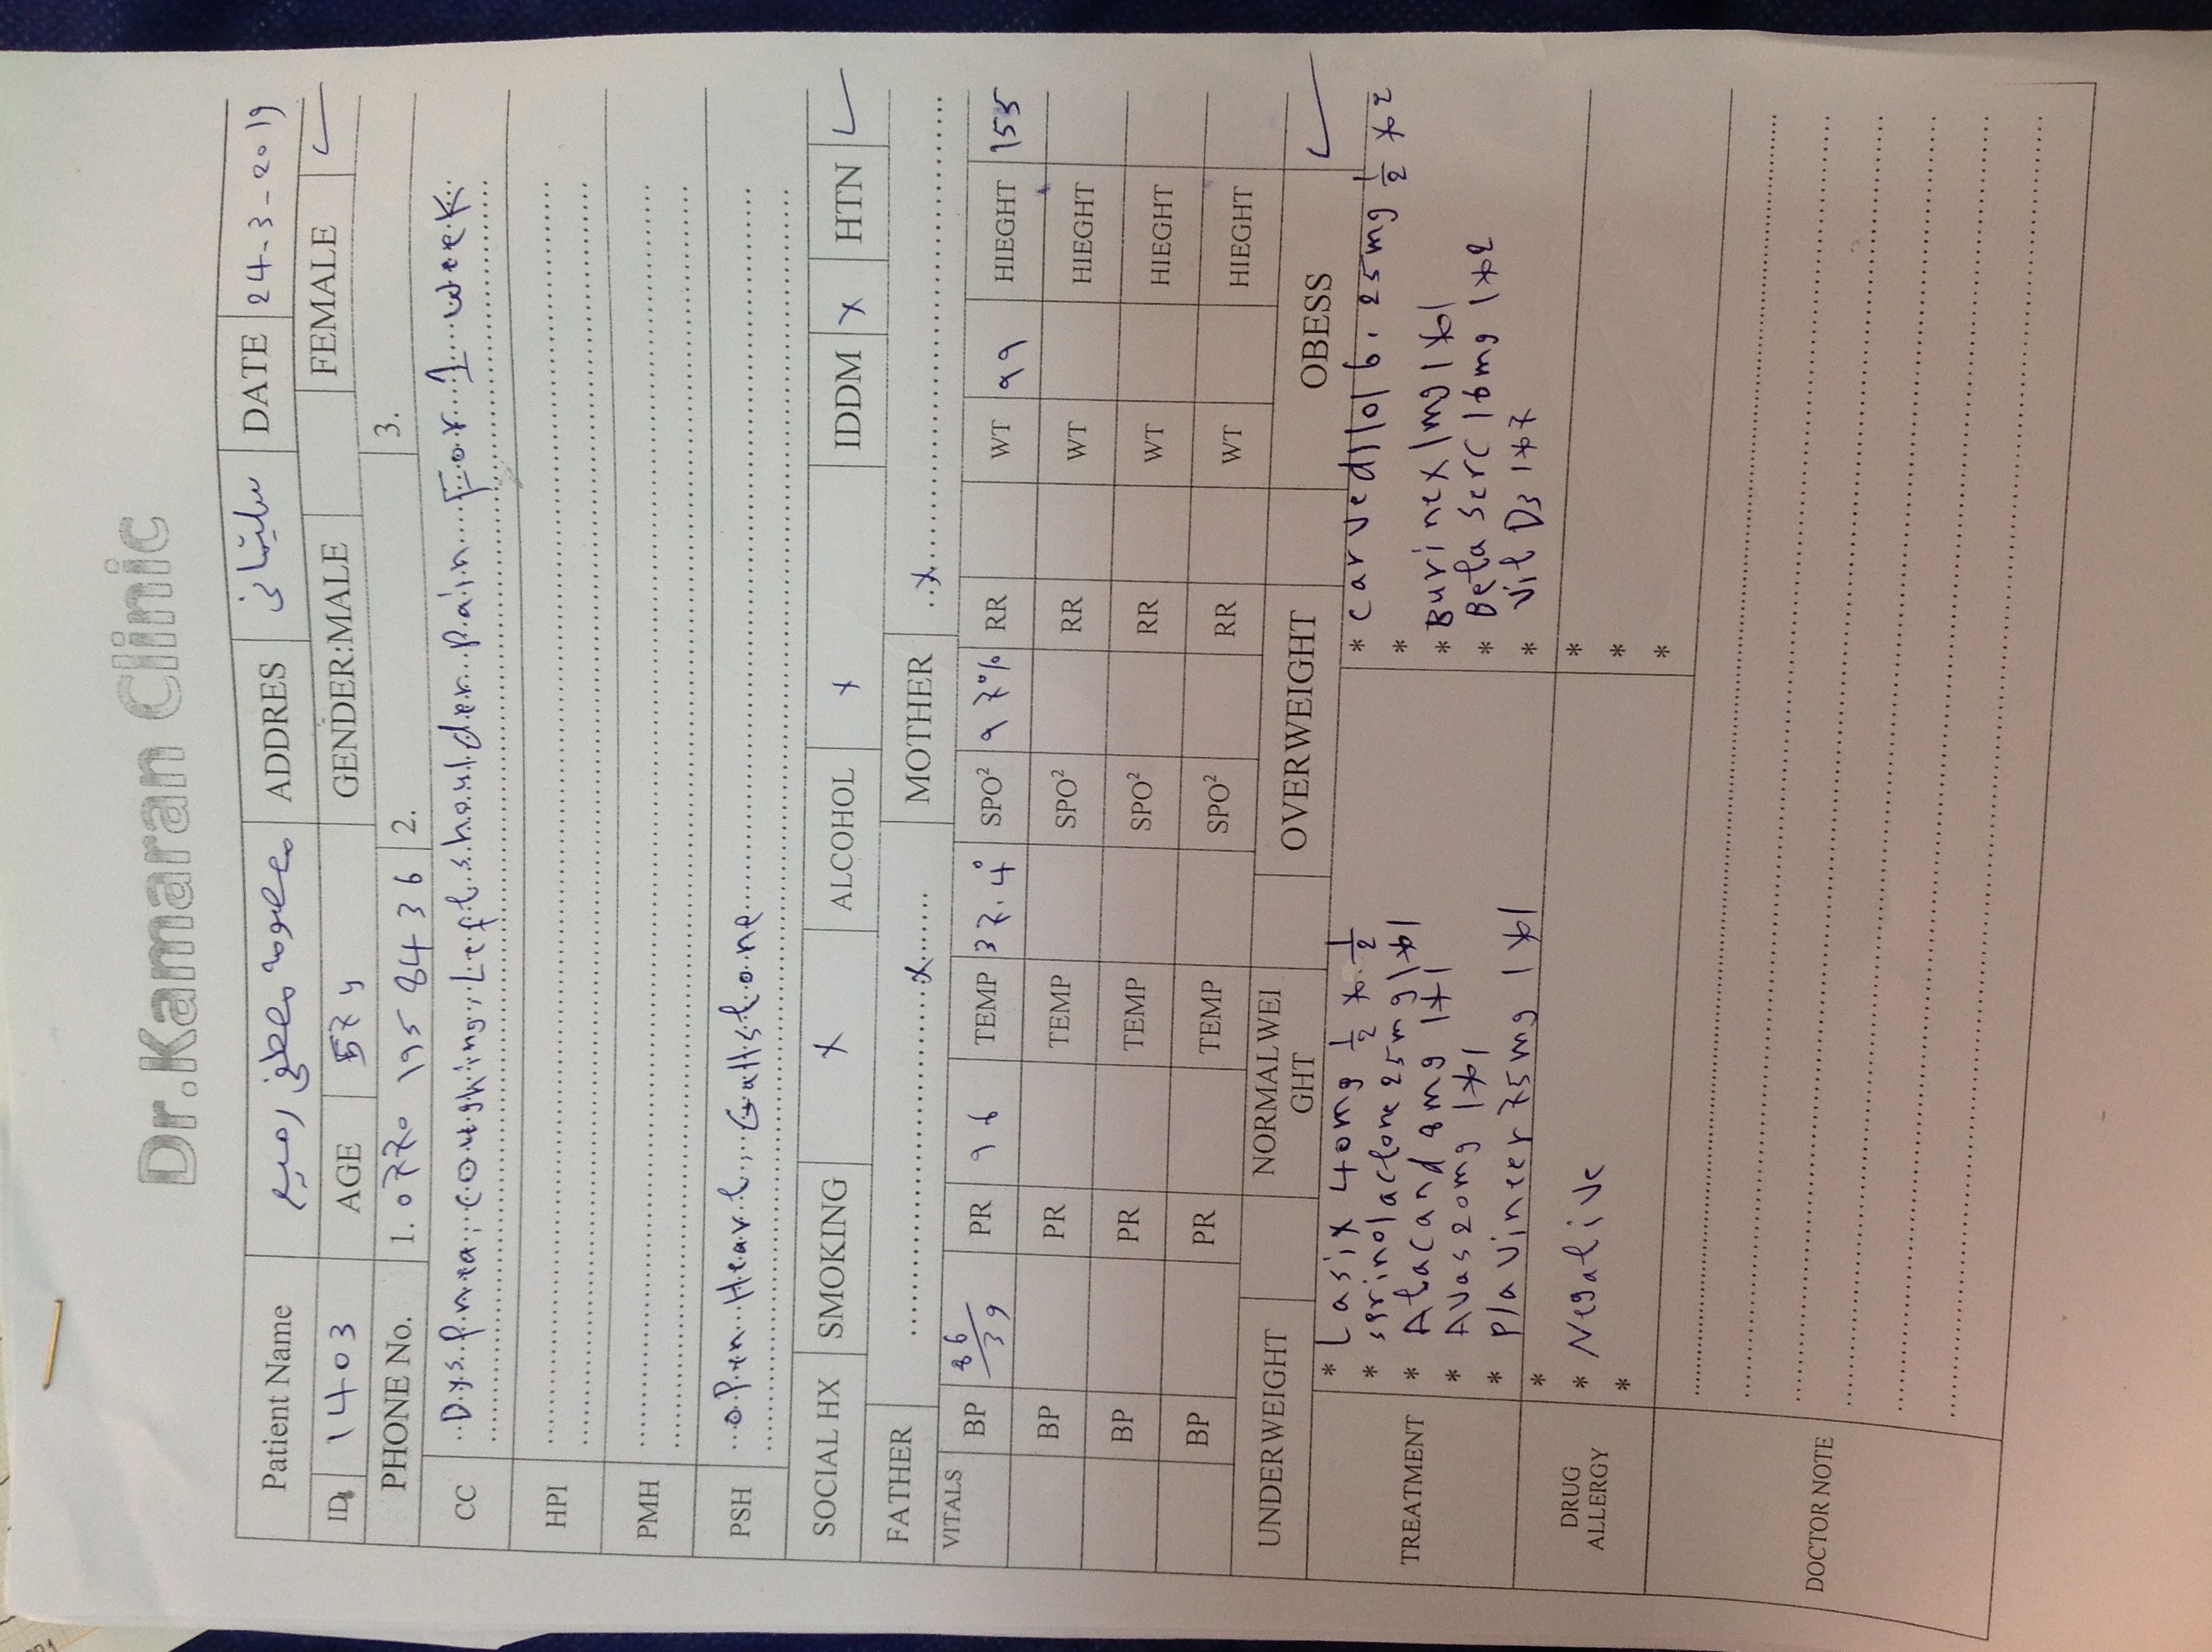 Dr.Kamaran Clinic
Patient Name معصومه مصطفی رحیم ADDRES سلیمانی DATE 24-3-2019
ID 1403 AGE 57 y GENDER:MALE FEMALE ✓
PHONE No. 1. 0770 195 84 36 2. 3.
CC Dyspnea, coughing, Left shoulder pain For 1 week
HPI
PMH
PSH open Heart, Gallstone
SOCIAL HX SMOKING x ALCOHOL x IDDM x HTN ✓
FATHER x MOTHER x
VITALS BP 86/39 PR 96 TEMP 37.4° SPO² 97% RR WT 99 HIEGHT 155
BP PR TEMP SPO² RR WT HIEGHT
BP PR TEMP SPO² RR WT HIEGHT
BP PR TEMP SPO² RR WT HIEGHT
UNDERWEIGHT NORMALWEIGHT OVERWEIGHT OBESS ✓
TREATMENT
* Lasix 40mg ½ x ½
* sprinolactone 25mg 1x1
* Atacand 8mg 1x1
* Avas 20mg 1x1
* plavineer 75mg 1x1
* carvedilol 6.25mg ½ x2
*
* Burinex 1mg 1x1
* Beta serc 16mg 1x2
* Vit D3 1x7
DRUG ALLERGY
*
* Negative
*
*
*
*
DOCTOR NOTE